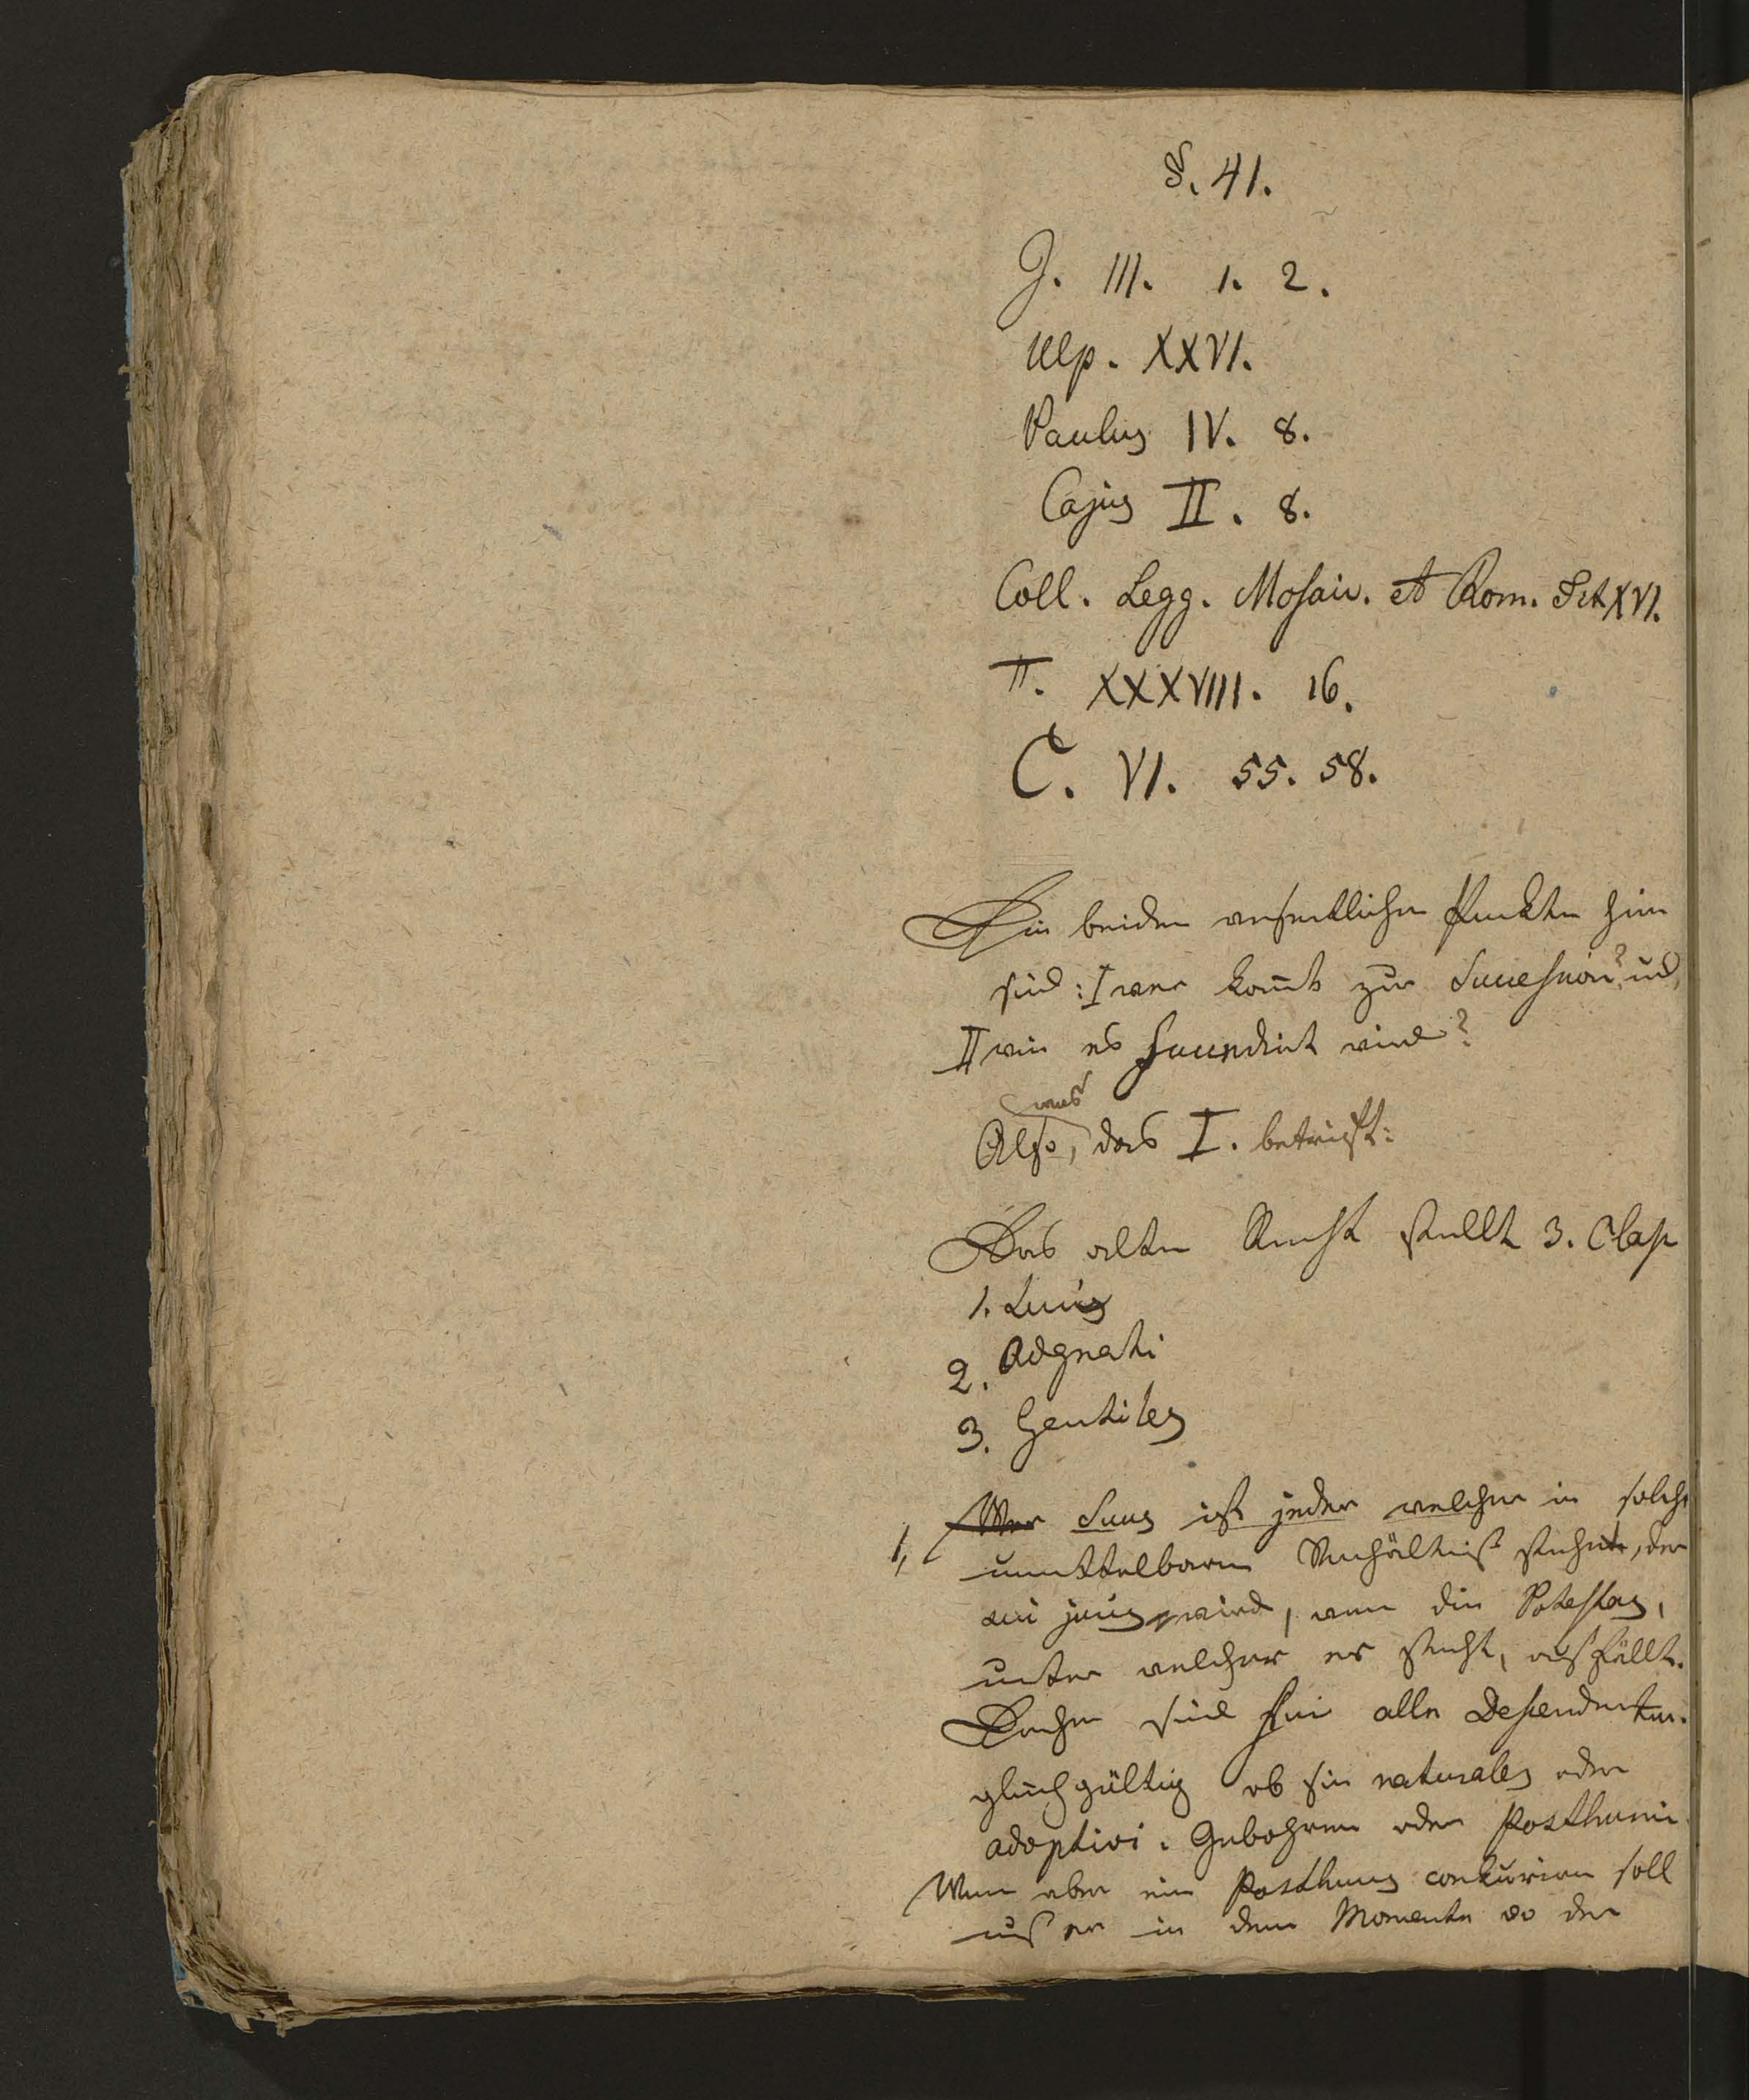 §. 41.
J. III. 1. 2.
Ulp. XXVI.
Paulus IV. 8.
Cajus II. 8.
Coll. Legg. Mosaic. et Rom. Tit XVI.
π. XXXVIII. 16.
C. VI. 55. 58.
Die beiden wesentlichen Punkte hier
sind: I wer kom̅t zur Succession? und
II wie es succedirt wird?
was
Also, das I. betrifft:
Das alte Recht stellt 3. Class
1. Suus
2. Adgnati
3. Gentiles
1, Wer Suus ist jeder welcher in solch
unmittelbaren Verhältniß stehet, der
sui juris wird, wenn die Potestas,
unter welcher er steht, wegfällt.
Daher sind sui alle Descendenten.
gleichgültig ob sie naturales oder
adoptivi. Gebohrene oder Posthumi
Wenn aber ein Posthumus conkuriren soll
muß er in dem Momente wo der